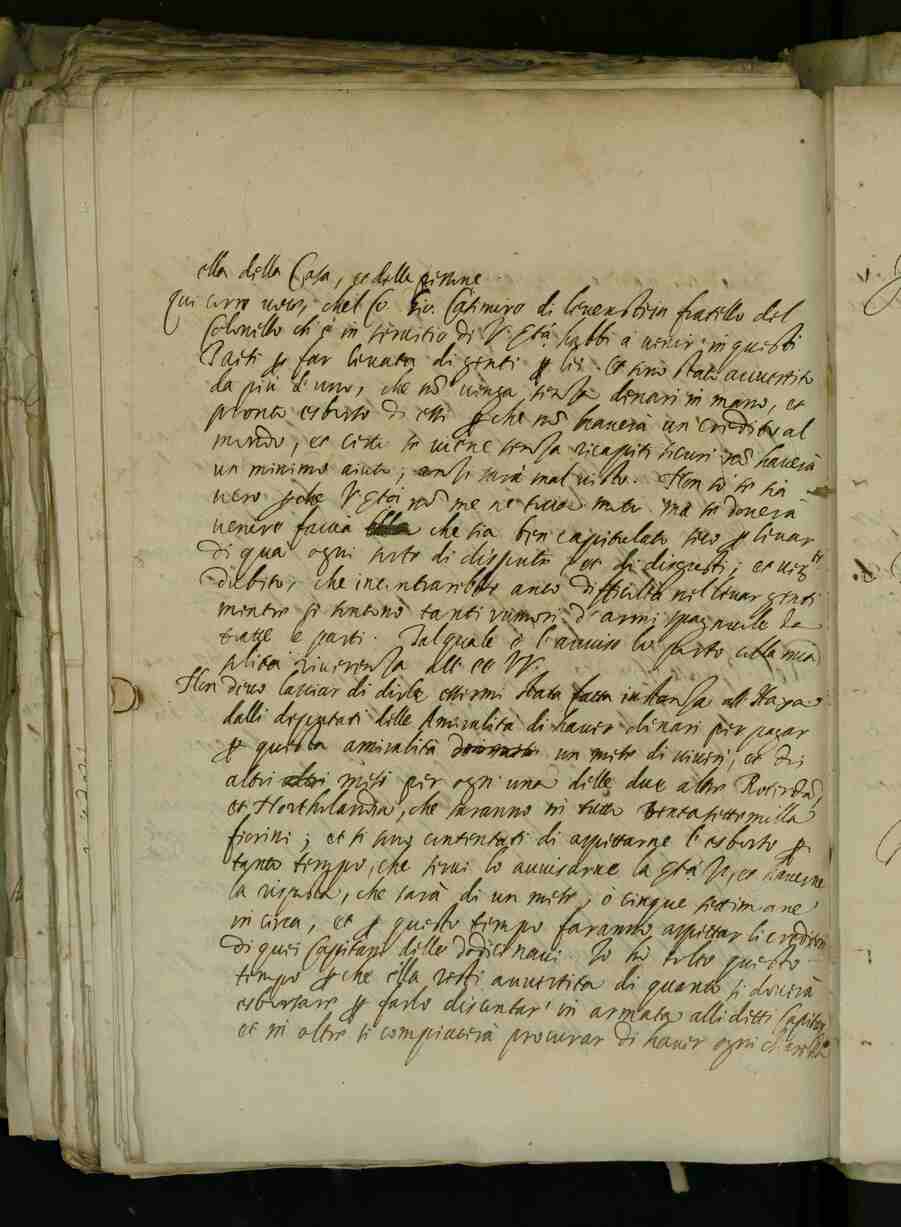 ella della Casa, et delle persone
Qui corre voce, che'l Co. Gio. Casimiro di levenstein fratello del
Colonello ch'è in servitio di V. Sta. habbi a venir in questi
Paesi per far levata di genti per lei. et sono stato avvertito
da più d'uno, che non venga senza denari in mano, et
pronto esborso di essi perche non haverà un credito al
mondo, et certo se viene senza ricapiti sicuri non haverà
un minimo aiuto; anzi sarà mal visto. Non so se sia
vero perche V. Stà. non me ne tocca moto ma se doverà
venire faccia che sia ben capitulato seco per levar
di qua ogni sorte di disputa et di disgusti; et
dubitar, che incontrarebbe anco difficoltà nel levar genti
mentre si sentono tanti rumori d'armi spagnuole da
tutte le parti. Tal quale è l'avviso lo porto alla
riverenza all' EE VV.
Non devo lasciar di dirle essermi stata fatta instanza all'Haya
dalli deputati delle Amiralità di haver denari per pagar
per questa amiralità un mese di viveri, et di
altri mesi per ogni una delle due altre Roterdam,
et Northolandia, che saranno in tutto trentasettemilla
fiorini; et si sono contentati di aspettarne l'esborso per
tanto tempo, che servi lo avvisarne la Stà. V., et haverne
la risposta, che sarà di un mese, o cinque settimane
in circa, et per questo tempo faranno aspettar li creditori
di quei Capitani delle dodici navi. Io ho tolto questo
tempo perche ella resti avvertita di quanto si doverà
esborsare per farlo discontar' in armata alli detti Capitani
et in oltre si compiacerà procurar di haver ogni